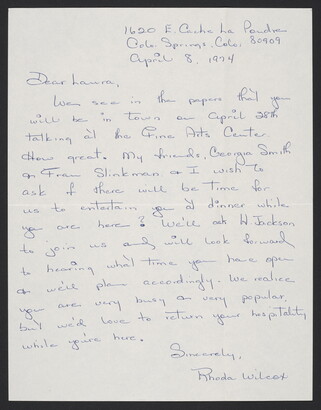 1620 E. Cache La Poudre
Colo. Springs, Colo. 80909
April 8, 1974
Dear Laura,
Have seen in the papers that you
will be in town on April 28th
talking at the Fine Arts Center.
How great. My friends, Georgia Smith
& Fran Slinkman & I wish to
ask if there will be time for
us to entertain you at dinner while
you are here? We'll ask H. Jackson
to join us and will look forward
to hearing what time you have open
& we'll plan accordingly. We realize
you are very busy & very popular,
but we'd love to return your hospitality
while you're here.
Sincerely,
Rhoda Wilcox